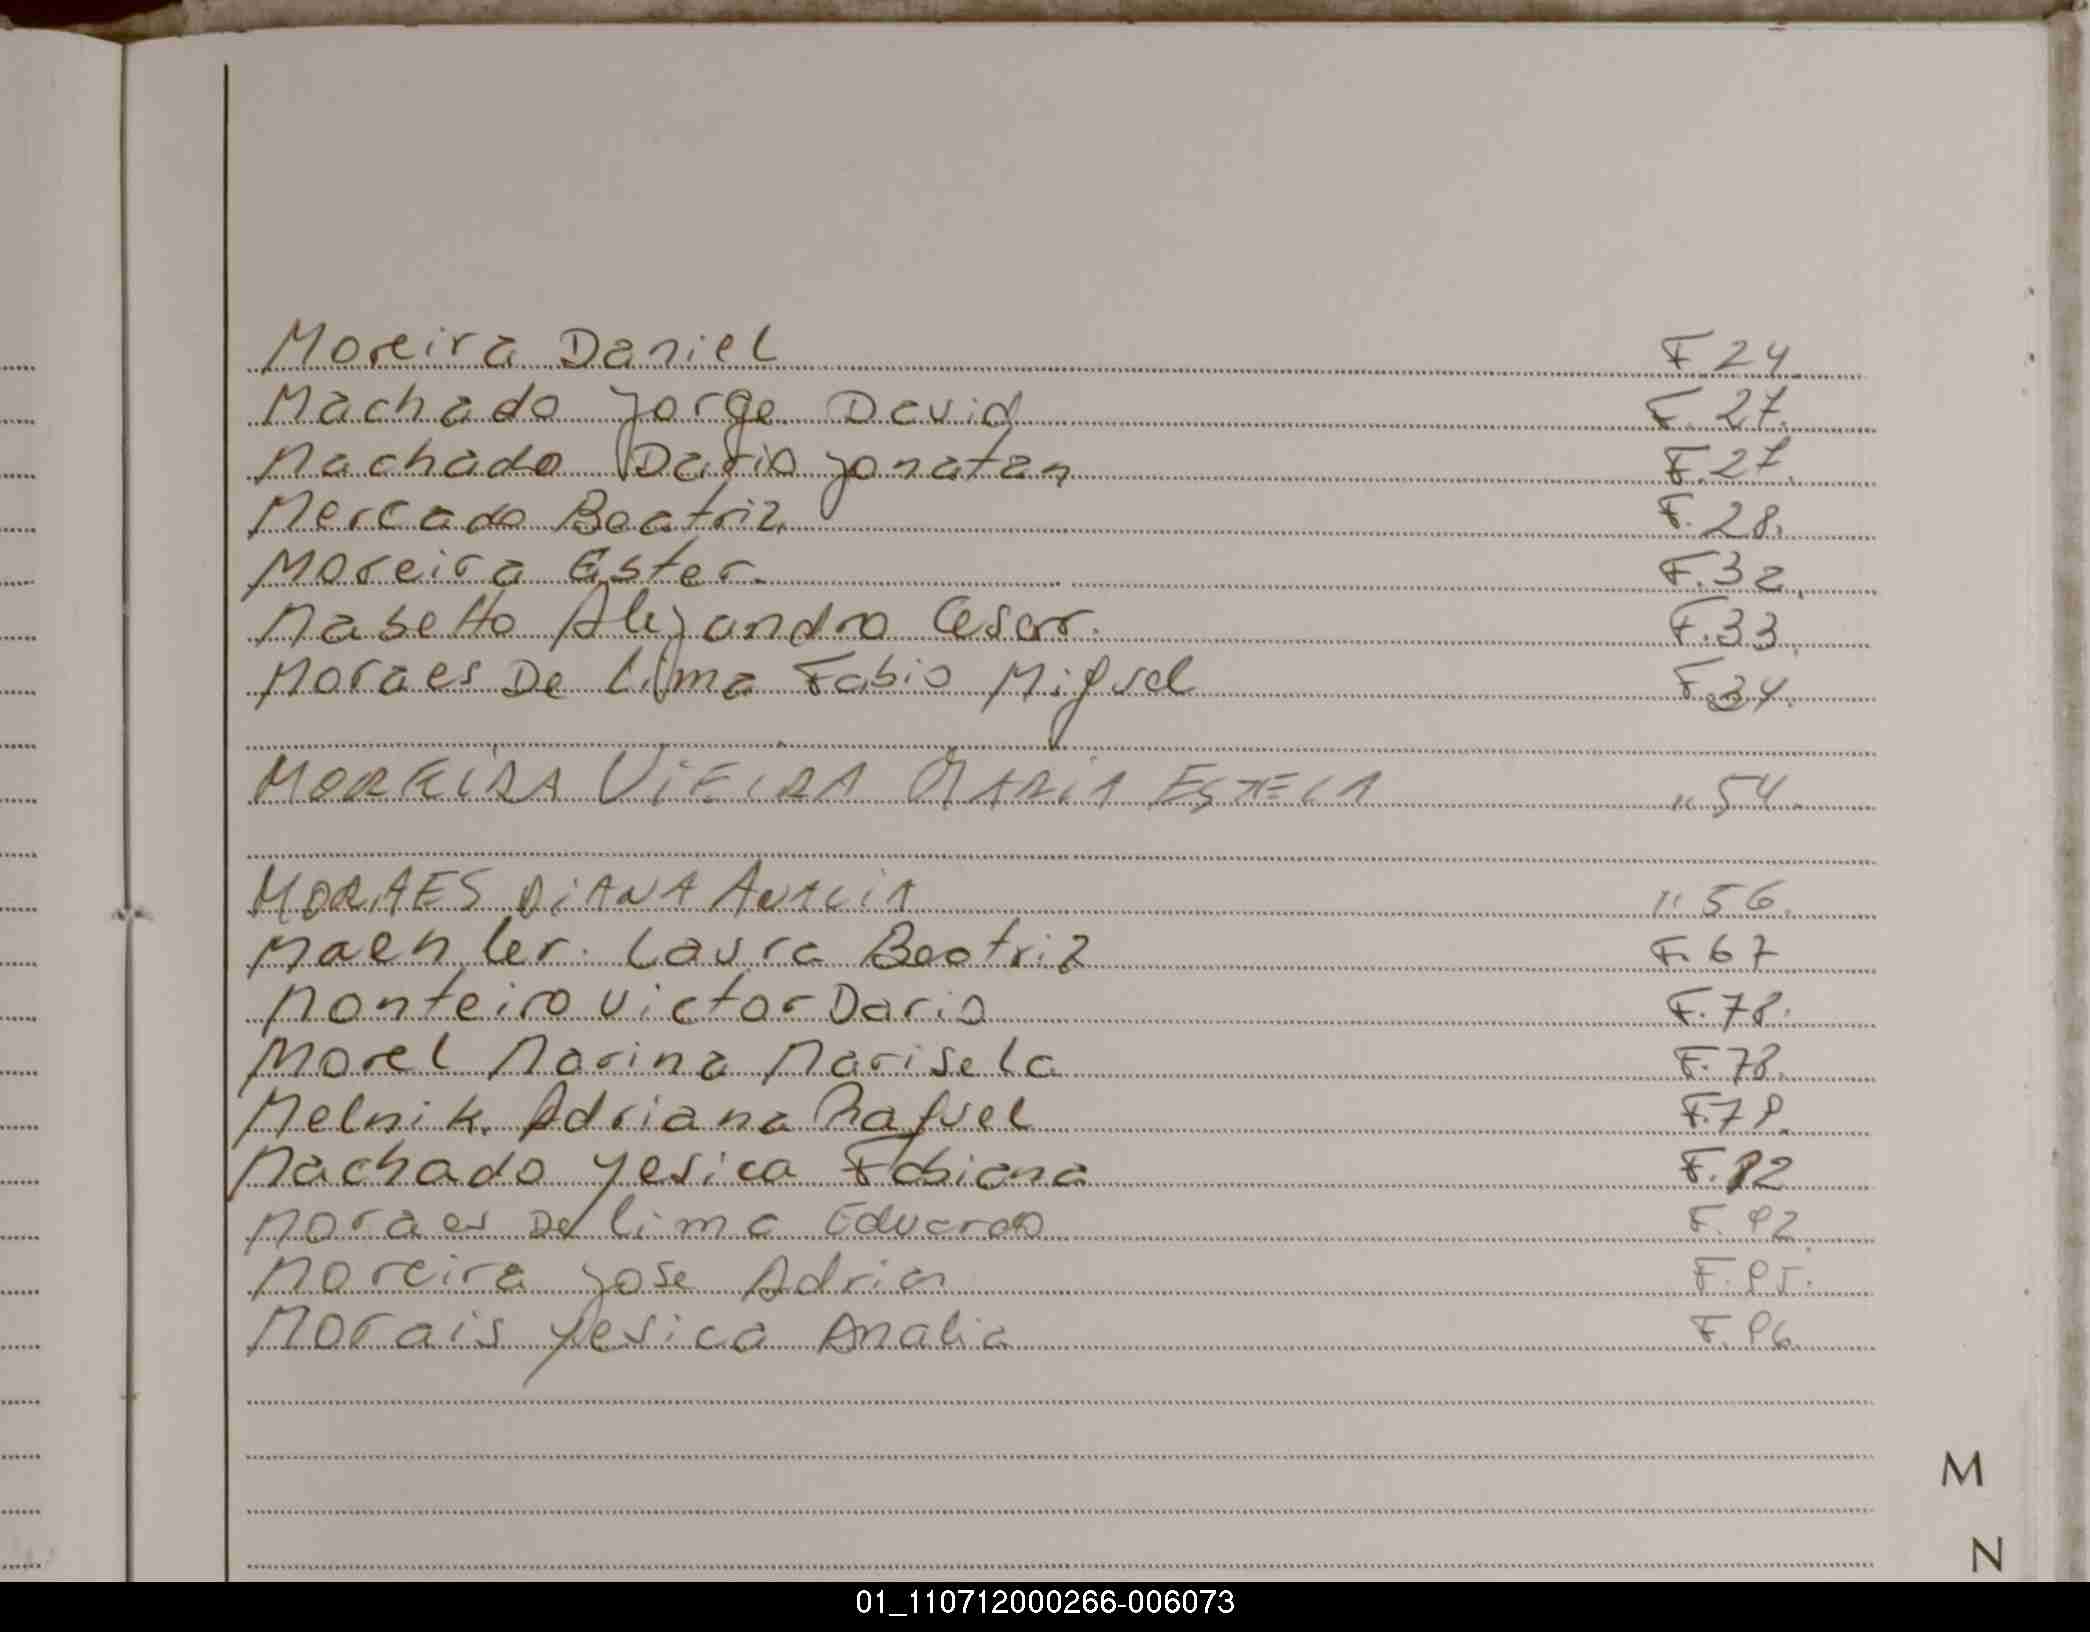 Moreira Daniel F. 24.
Machado Jorge David F. 27.
Machado Dario Jonatan F. 27.
Mercado Beatriz F. 28.
Moreira Ester. F. 32.
Masetto Alejandro Cesar. F. 33.
Moraes De Lima Fabio Miguel F. 34.
MOREIRA VIEIRA MARIA ESTELA " 54.
MORAES DIANA ANALIA " 56.
Maenler. Laura Beatriz F. 67
Monteiro Victor Dario F. 78.
Morel Marina Marisela F. 78.
Melnik. Adriana Raquel
Machado Yesica Fabiana
Moraes De Lima Eduardo F. 92.
Moreira Jose Adrian F. 95.
Morais Yesica Analia F. 96.
M
N
01_110712000266-006073